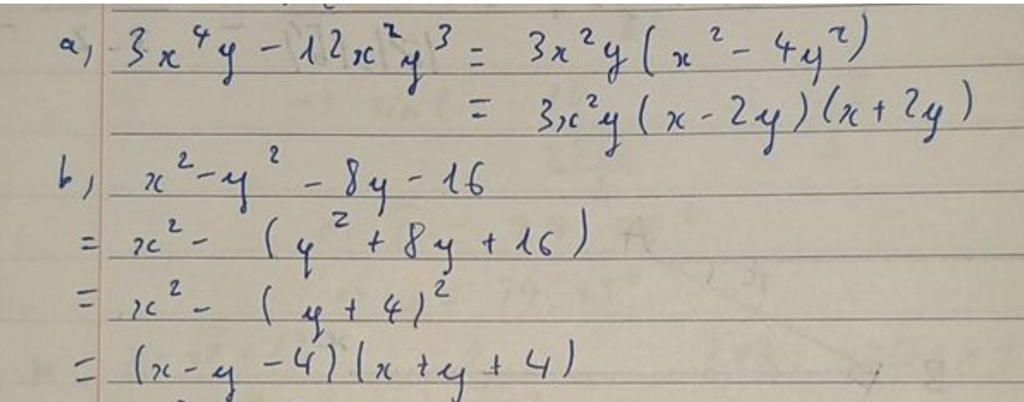 a, 3x⁴y - 12x²y³ = 3x²y(x² - 4y²)
= 3x²y(x - 2y)(x + 2y)
b, x² - y² - 8y - 16
= x² - (y² + 8y + 16)
= x² - (y + 4)²
= (x - y - 4)(x + y + 4)